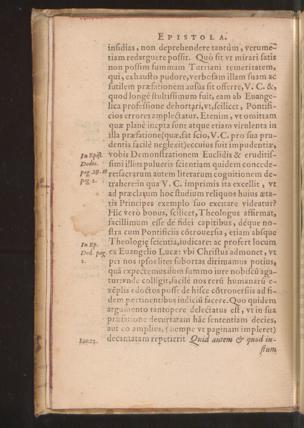 EPISTOLA.
insidias, non deprehendere tantùm, verumetiam
redarguere possit. Quò fit vt mirari satis
non possim summam Turriani temeritatem,
qui, exhausto pudore, verbosam illam suam ac
futilem præfationem ausus sit offerre, V. C. &,
quod longè stultissimum fuit, eam ab Euangelica
professione dehortari, vt, scilicet, Pontificios
errores amplectatur. Etenim, vt omittam
quæ planè inepta sunt atque etiam virulenta in
illa præfatione (quæ, sat scio, V. C. pro sua prudentia
facilè neglexit) ecuius fuit impudentiæ,
In Epist.
Dedic.
pag.
pag. 2.
vobis Demonstrationem Euclidis & eruditissimi
illum pulueris scientiam quidem concedere:
sacrarum autem literarum cognitionem detrahere:
in qua V. C. imprimis ita excellit, vt
ad præclarum hoc studium reliquos huius ætatis
Principes exemplo suo excitare videatur?
Hic verò bonus, scilicet, Theologus affirmat,
facillimum esse de fidei capitibus, deque nostra
cum Pontificiis cōtrouersia, etiam absque
Theologiæ scientia, iudicare: ac profert locum
In Ep.
Ded. pag.
2.
ex Euangelio Lucæ: vbi Christus admonet, vt
per nos ipsos lites subortas dirimamus potius,
quā expectemus dum summo iure nobiscū agatur:
vnde colligit, facilè nos rerū humanarū exēplis
edoctos posse de hisce cōtrouersiis ad fidem
pertinentibus indiciū facere. Quo quidem
argumento tantopere delectatus est, vt in sua
præfatione decurtatam hāc sententiam decies,
aut eo amplius, (nempe vt paginam impleret)
Luc. 12.
decantatam repetierit Quid autem & quod iustum